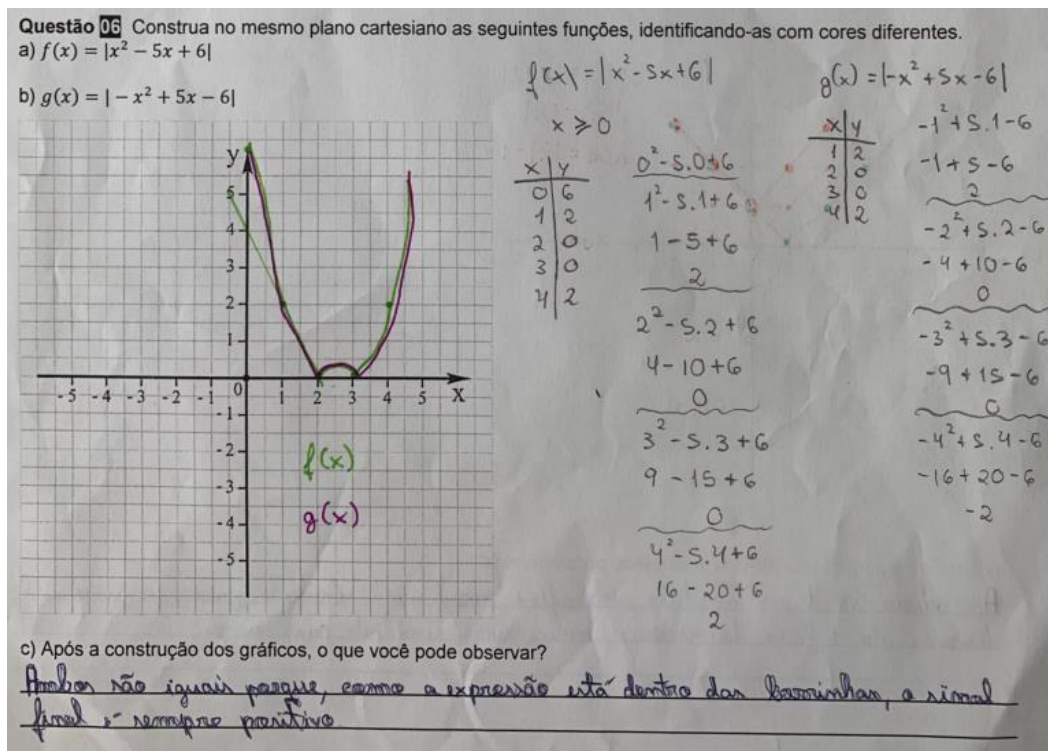 Questão 06 Construa no mesmo plano cartesiano as seguintes funções, identificando-as com cores diferentes.
a) f(x) = |x² − 5x + 6|
b) g(x) = | − x² + 5x − 6|
f(x) = |x² - 5x + 6|
x ⩾ 0
x | y
0 | 6
1 | 2
2 | 0
3 | 0
4 | 2
0² - 5.0 + 6
1² - 5.1 + 6
1 - 5 + 6
2
2² - 5.2 + 6
4 - 10 + 6
0
3² - 5.3 + 6
9 - 15 + 6
0
4² - 5.4 + 6
16 - 20 + 6
2
g(x) = |-x² + 5x - 6|
x | y
1 | 2
2 | 0
3 | 0
4 | 2
-1² + 5.1 - 6
-1 + 5 - 6
2
-2² + 5.2 - 6
-4 + 10 - 6
0
-3² + 5.3 - 6
-9 + 15 - 6
0
-4² + 5.4 - 6
-16 + 20 - 6
-2
y
5
4
3
2
1
-5 -4 -3 -2 -1 0 1 2 3 4 5 X
-1
-2
-3
-4
-5
f(x)
g(x)
c) Após a construção dos gráficos, o que você pode observar?
Ambos são iguais porque, como a expressão está dentro das barrinhas, o sinal
final é sempre positivo